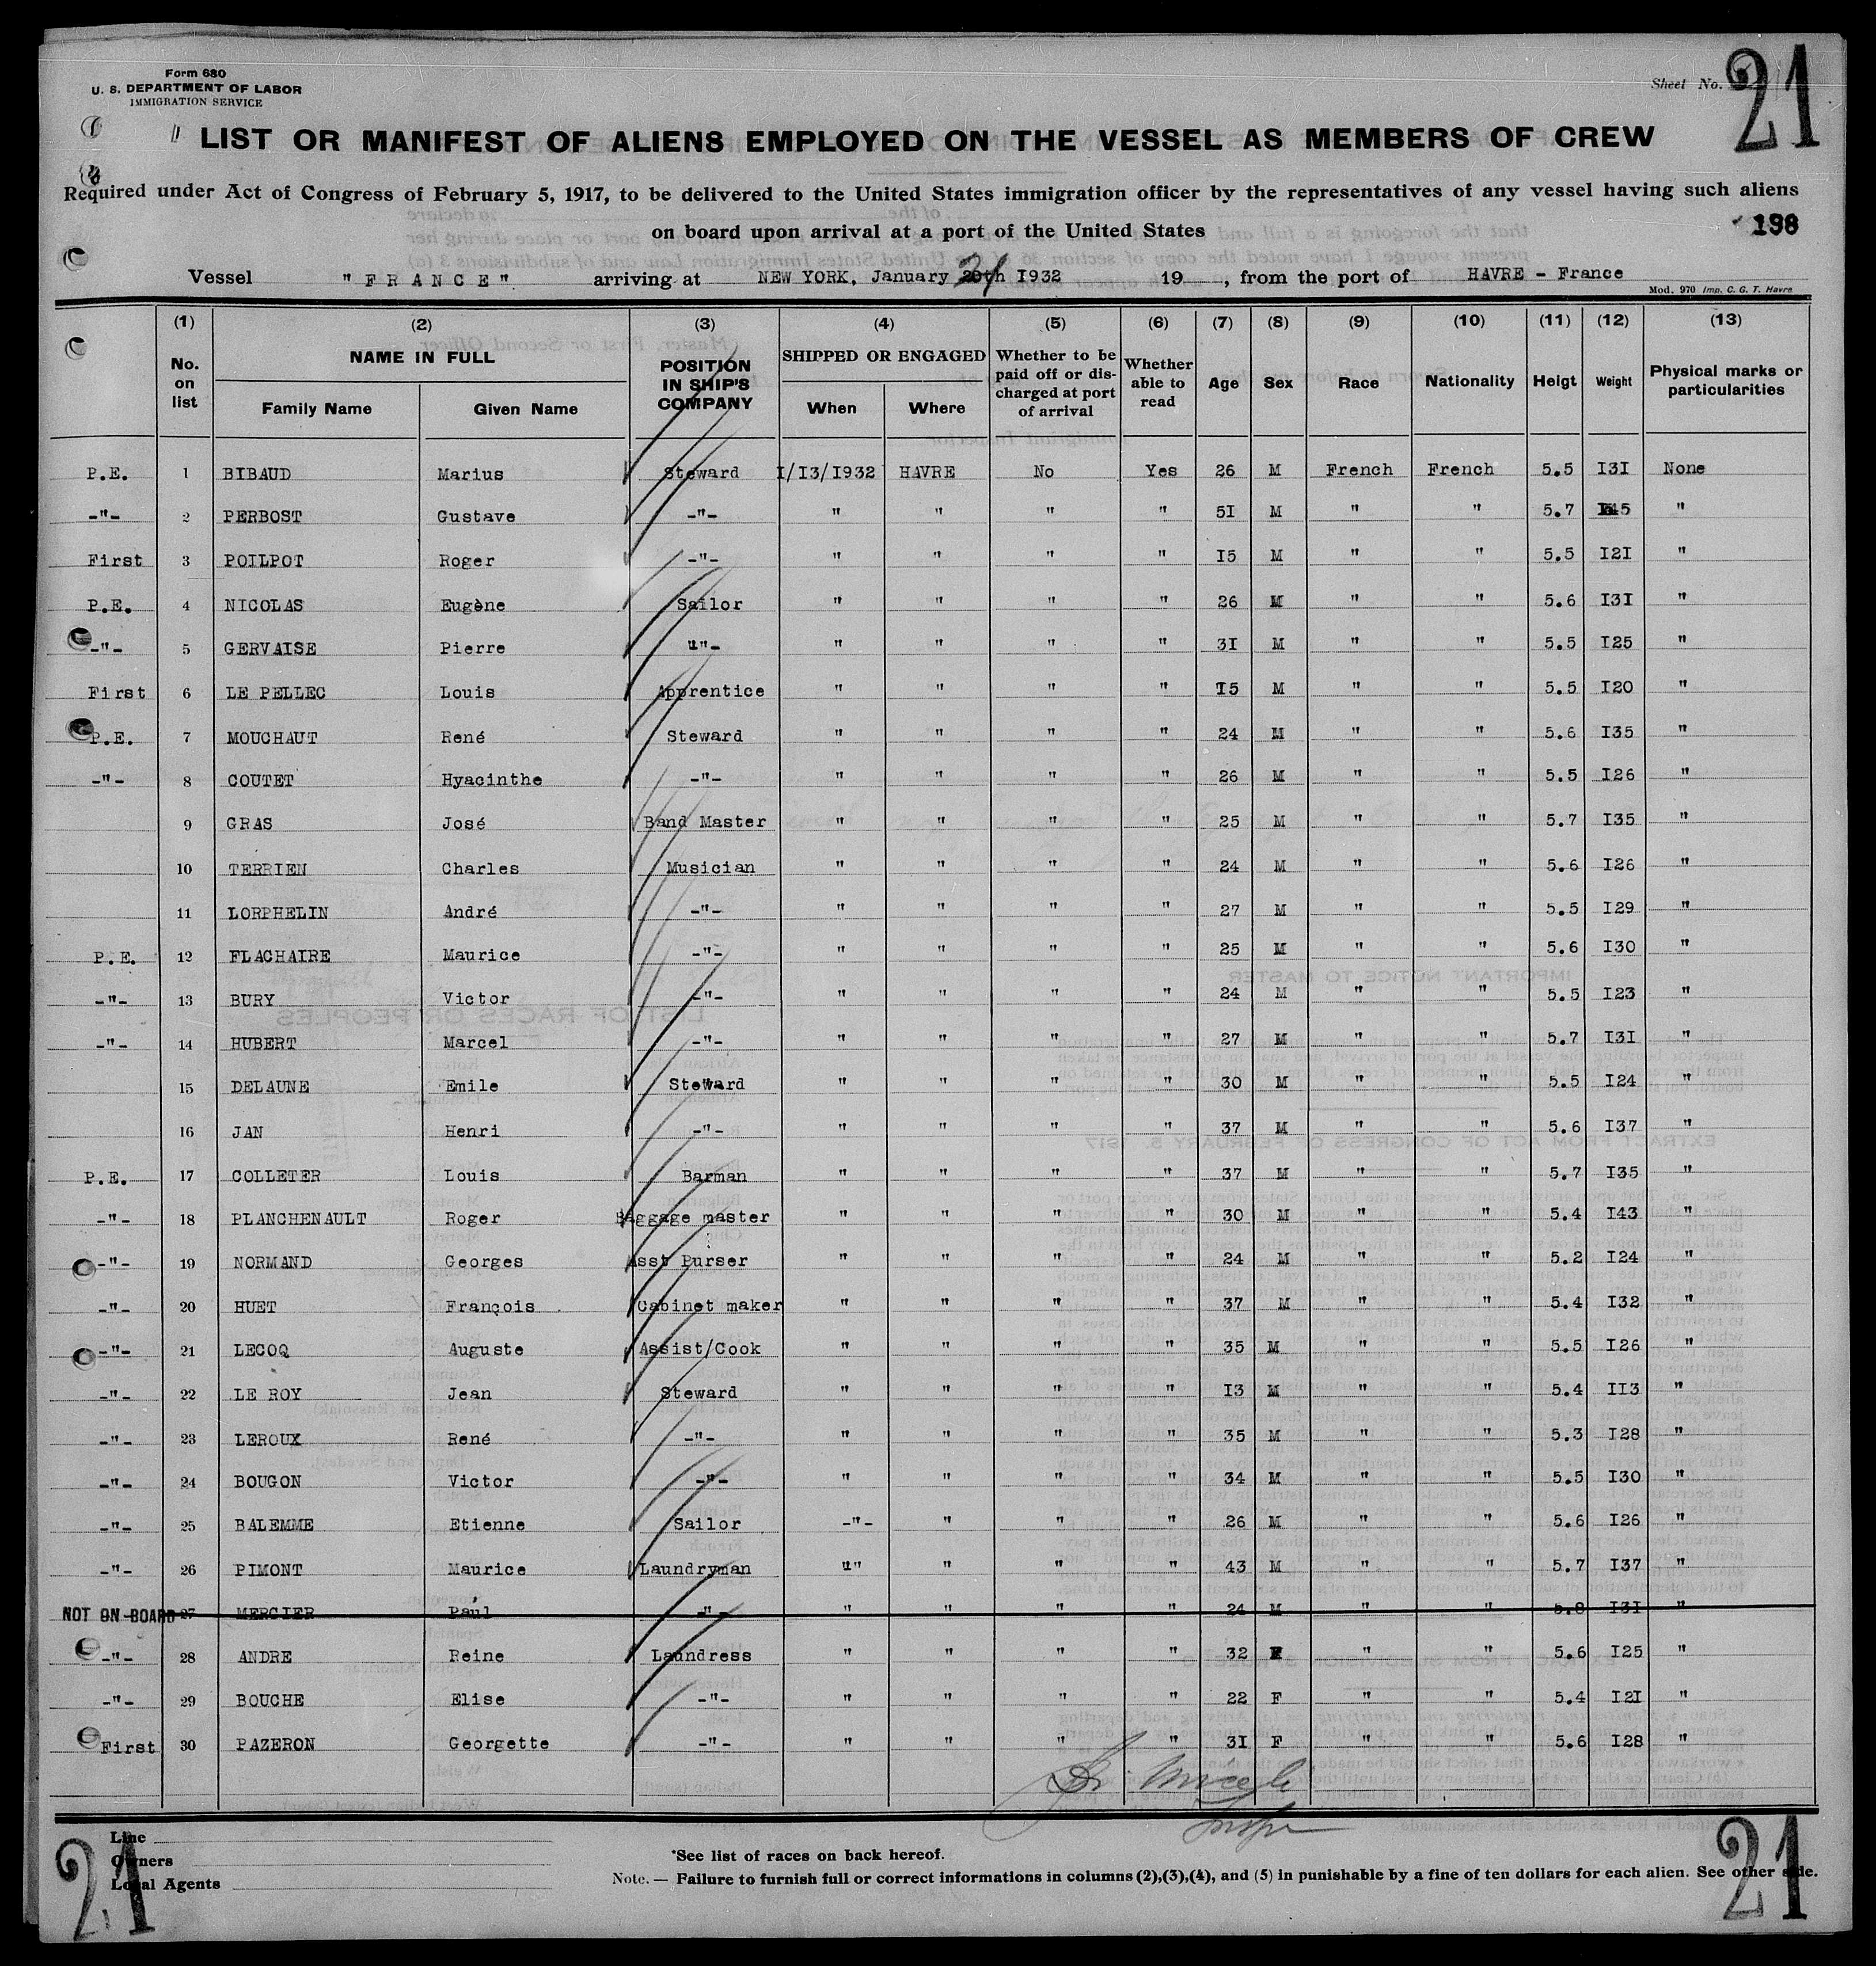 Form 680
U. S. DEPARTMENT OF LABOR
IMMIGRATION SERVICE
Sheet No. 21
LIST OR MANIFEST OF ALIENS EMPLOYED ON THE VESSEL AS MEMBERS OF CREW
Required under Act of Congress of February 5, 1917, to be delivered to the United States immigration officer by the representatives of any vessel having such aliens
on board upon arrival at a port of the United States
198
Vessel "FRANCE" arriving at NEW YORK, January 21 20th I932 19 , from the port of HAVRE - France
Mod. 970 Imp. C. G. T. Havre
(1) (2) (3) (4) (5) (6) (7) (8) (9) (10) (11) (12) (13)
No. on list NAME IN FULL Family Name Given Name POSITION IN SHIP'S COMPANY SHIPPED OR ENGAGED When Where Whether to be paid off or discharged at port of arrival Whether able to read Age Sex Race Nationality Heigt Weight Physical marks or particularities
P.E. 1 BIBAUD Marius Steward I/I3/I932 HAVRE No Yes 26 M French French 5.5 I3I None
-"- 2 PERBOST Gustave -"- " " " " 5I M " " 5.7 I45 "
First 3 POILPOT Roger -"- " " " " I5 M " " 5.5 I2I "
P.E. 4 NICOLAS Eugène Sailor " " " " 26 M " " 5.6 I3I "
-"- 5 GERVAISE Pierre -"- " " " " 3I M " " 5.5 I25 "
First 6 LE PELLEC Louis Apprentice " " " " I5 M " " 5.5 I20 "
P.E. 7 MOUCHAUT René Steward " " " " 24 M " " 5.6 I35 "
-"- 8 COUTET Hyacinthe -"- " " " " 26 M " " 5.5 I26 "
9 GRAS José Band Master " " " " 25 M " " 5.7 I35 "
10 TERRIEN Charles Musician " " " " 24 M " " 5.6 I26 "
11 LORPHELIN André -"- " " " " 27 M " " 5.5 I29 "
P.E. 12 FLACHAIRE Maurice -"- " " " " 25 M " " 5.6 I30 "
-"- 13 BURY Victor -"- " " " " 24 M " " 5.5 I23 "
-"- 14 HUBERT Marcel -"- " " " " 27 M " " 5.7 I3I "
15 DELAUNE Emile Steward " " " " 30 M " " 5.5 I24 "
16 JAN Henri -"- " " " " 37 M " " 5.6 I37 "
P.E. 17 COLLETER Louis Barman " " " " 37 M " " 5.7 I35 "
-"- 18 PLANCHENAULT Roger Baggage master " " " " 30 M " " 5.4 I43 "
-"- 19 NORMAND Georges Asst Purser " " " " 24 M " " 5.2 I24 "
-"- 20 HUET François Cabinet maker " " " " 37 M " " 5.4 I32 "
-"- 21 LECOQ Auguste Assist/Cook " " " " 35 M " " 5.5 I26 "
-"- 22 LE ROY Jean Steward " " " " I3 M " " 5.4 II3 "
-"- 23 LEROUX René -"- " " " " 35 M " " 5.3 I28 "
-"- 24 BOUGON Victor -"- " " " " 34 M " " 5.5 I30 "
-"- 25 BALEMME Etienne Sailor -"- " " " 26 M " " 5.6 I26 "
-"- 26 PIMONT Maurice Laundryman " " " " 43 M " " 5.7 I37 "
NOT ON BOARD 27 MERCIER Paul -"- " " " " 24 M " " 5.8 I3I "
-"- 28 ANDRE Reine Laundress " " " " 32 F " " 5.6 I25 "
-"- 29 BOUCHE Elise -"- " " " " 22 F " " 5.4 I2I "
First 30 PAZERON Georgette -"- " " " " 3I F " " 5.6 I28 "
Line
Owners
Local Agents
21
*See list of races on back hereof.
Note. — Failure to furnish full or correct informations in columns (2),(3),(4), and (5) in punishable by a fine of ten dollars for each alien. See other side.
21